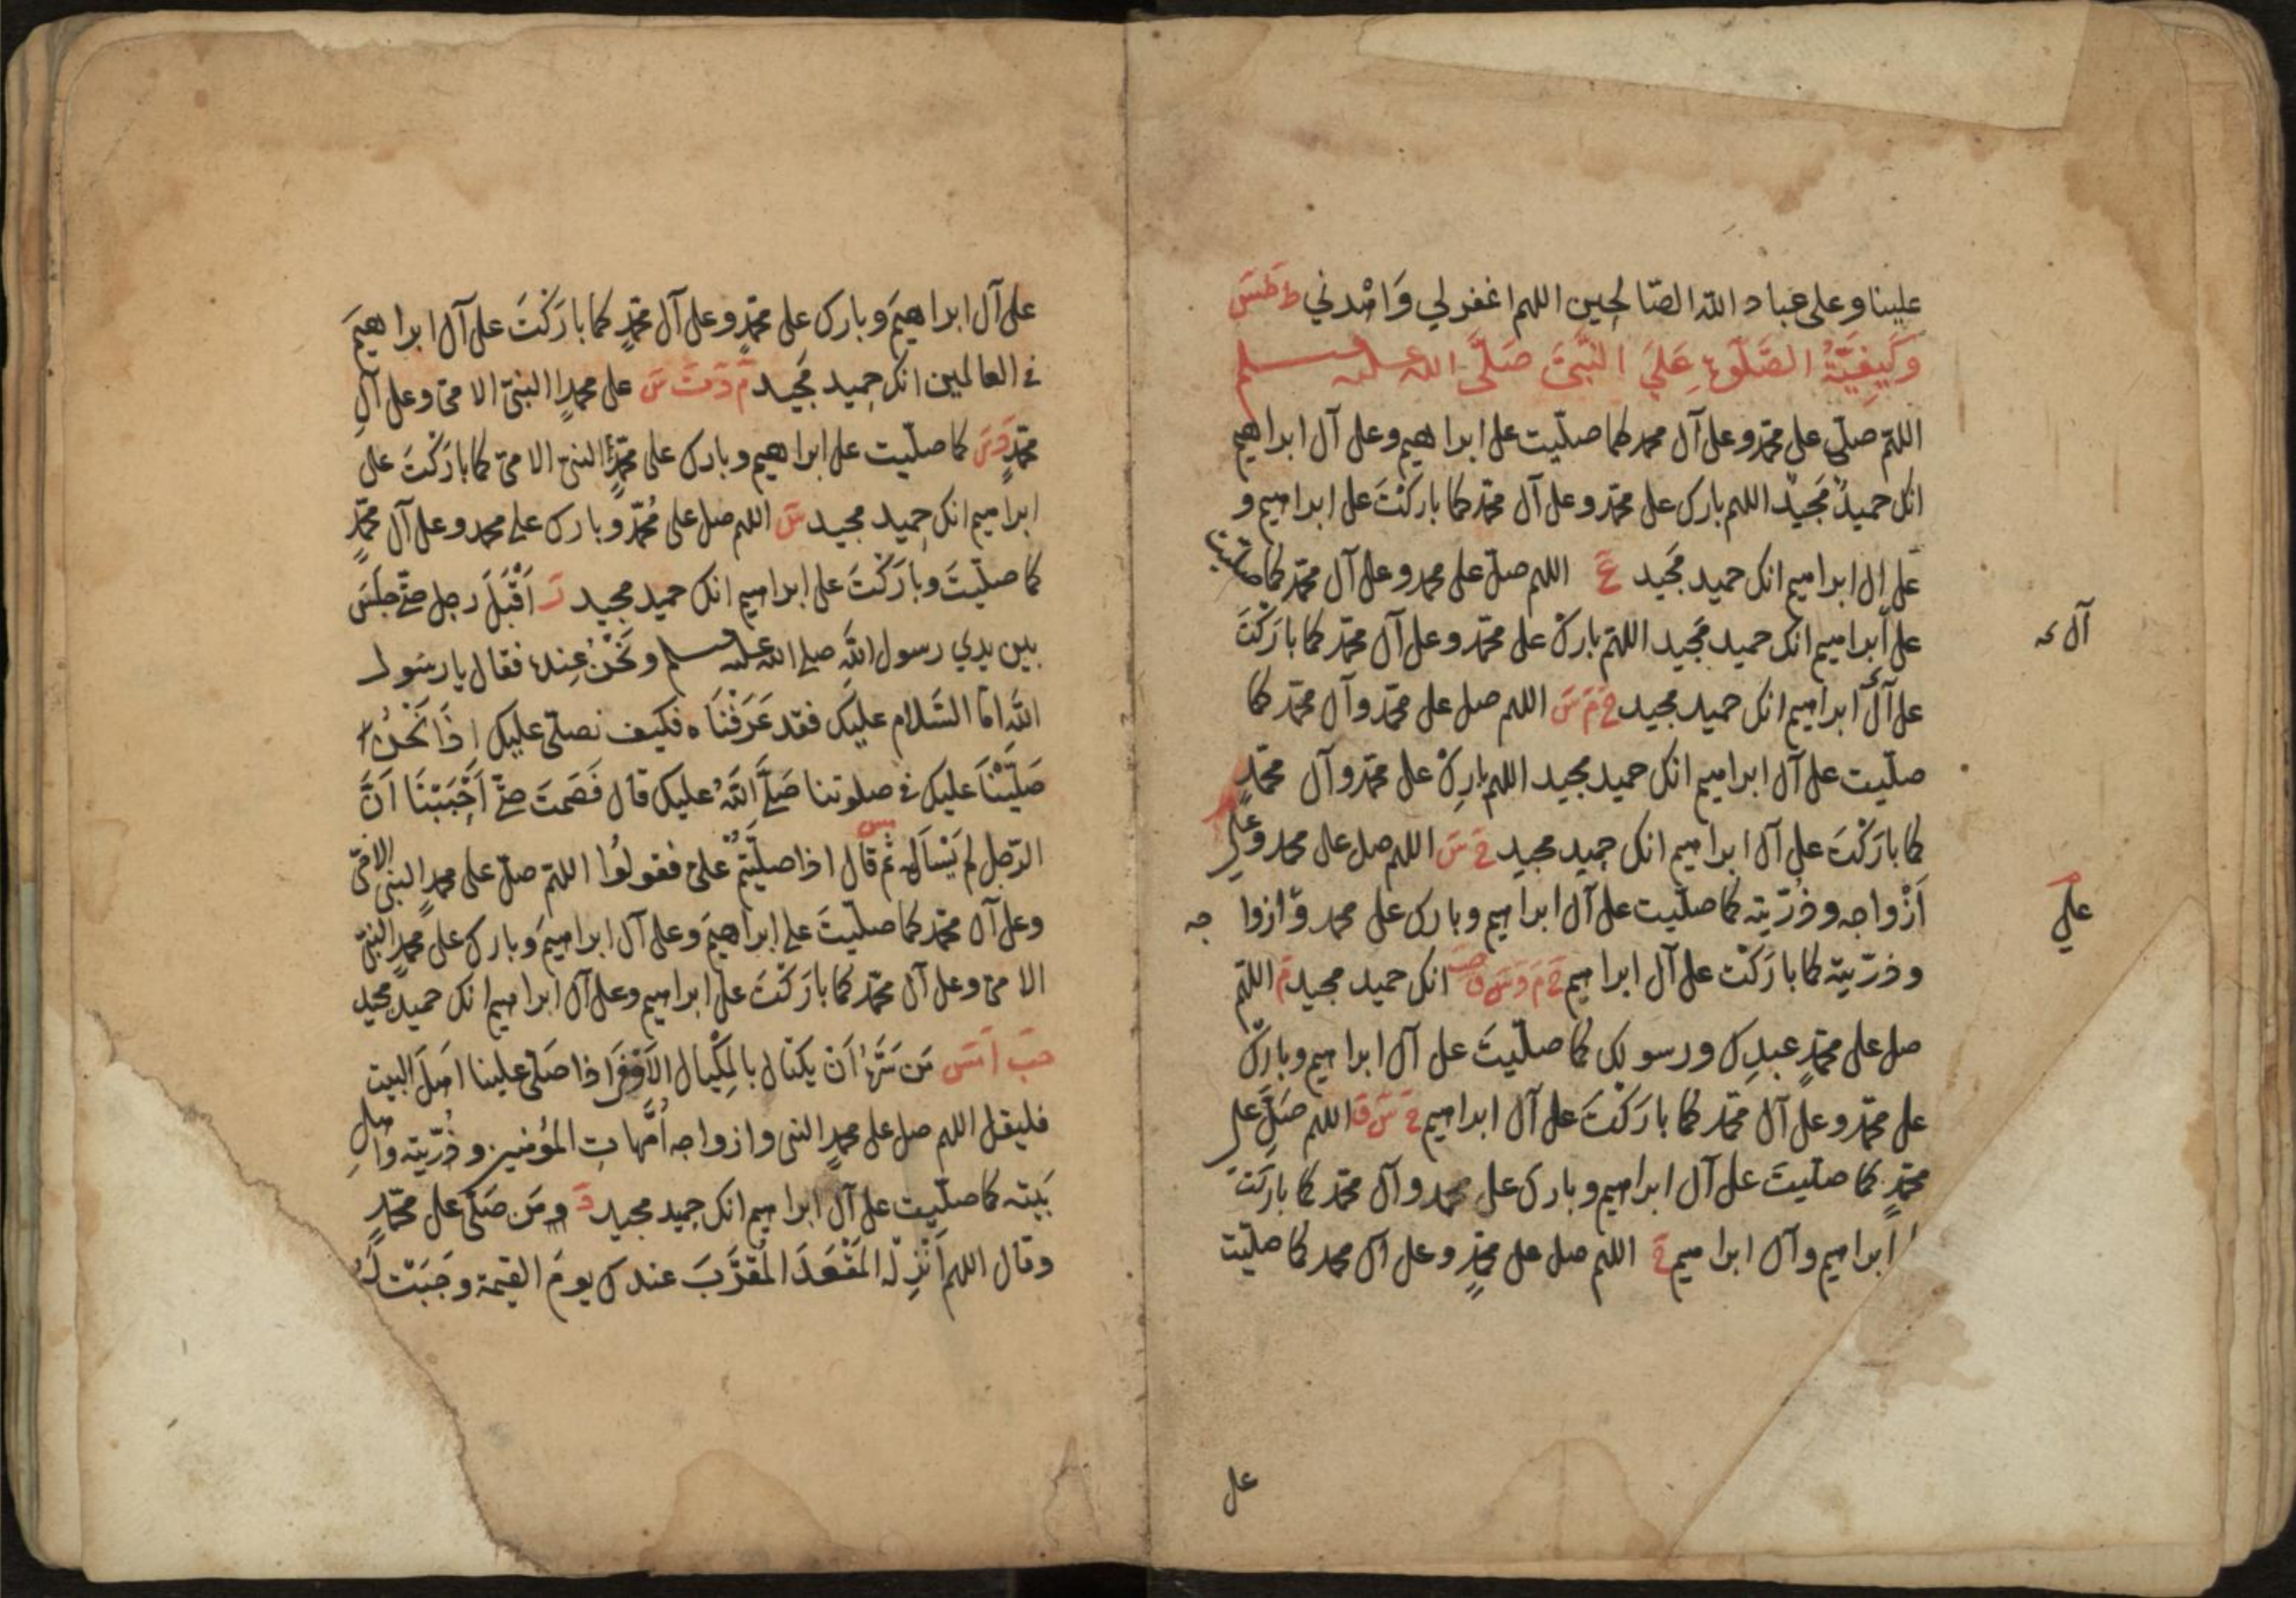 علينا وعلى عباد الله الصالحين اللهم اغفر لي وَاهْدني ط طس
وَكَيفِيَّةُ الصَّلٰوةِ عَلَى النَّبِيِّ صَلَّى الله عليه وسلم
اللهم صلّ على محمّد وعلى آل محمد كما صلّيت على ابراهيم وعلى آل ابراهيم
انك حميدٌ مَجيدٌ اللهم بارك على محمّد وعلى آل محمّد كما باركْتَ على ابراهيم و
على ال ابراهيم انك حميد مَجيد عَ اللهم صلّ على محمد وعلى آل محمّد كما صلّيت
على ابراهيم انك حميد مَجيد اللهمّ باركْ على محمّد وعلى آل محمّد كما بارَكْتَ
على آل ابراهيم انك حميد مجيد خ م س اللهم صل على محمّد وآل محمّد كما
آل
صلّيت على آل ابراهيم انك حميد مجيد اللهم بارِكْ على محمّد وآل محمّدٍ
كما بارَكْتَ على آل ابراهيم انك حميد مجيد خ س اللهم صل على محمد وعلى
أَزْواجه وذُرّيته كما صلّيت على آل ابراهيم وبارك على محمد وّازوا جه
على
وذرّيته كما بارَكْتَ على آل ابراهيم خ م د س ق انك حميد مجيد م اللهمّ
صل على محمّدٍ عبدِك ورسولك كما صلّيتَ على آل ابراهيم وبارِكْ
على محمّد وعلى آل محمّد كما بارَكْتَ على آل ابراهيم خ س ق اللهم صَلِّ على
محمّدٍ كما صلّيتَ على آل ابراهيم وبارك على محمد وآل محمّد كما بارَكْتَ
ابراهيم وآل ابراهيم خ اللهم صل على محمّدٍ وعلى آل محمد كما صليت
على
على آل ابراهيمَ وبارك على محمّدٍ وعلى آل محمّدٍ كما بارَكْتَ على آل ابراهيمَ
في العالمين انك حميد مَجيد م د ت س على محمدٍ النبيّ الامّي وعلى آلِ
محمّدٍ د س كما صلّيت على ابراهيم وبارك على محمّدٍ النبيّ الامّي كما بارَكْتَ على
ابراهيم انك حميد مجيد س اللهم صل على مُحمّد وبارك على محمد وعلى آل محمّدٍ
كما صلّيتَ وبارَكْتَ على ابراهيم انك حميد مجيد ر أَقْبَلَ رجل حتّى جلَسَ
بين يدي رسول اللهِ صلى الله عليه وسلم ونَحْنُ عِنده فقال يا رسول
الله امّا السَّلام عليك فقد عَرَفْنَاه فكيف نصلّي عليك اِذَا نَحْنُ
صَلَّيْنَا عليك في صلوتنا صَلَّى اللّٰهُ عليك قال فَصَمتَ حتّى أَحْبَبْنَا أَنَّ
الرّجل لم يَسْأَله ثم قال اذا صلّيتُم عليّ فقولُوا اللهمّ صلّ على محمدٍ النبي الامّيّ
وعلى آل محمّد كما صلّيتَ على ابراهيمَ وعلى آل ابراهيمَ وبارك على محمدٍ النبيّ
الامّي وعلى آل محمّد كما بارَكْتَ على ابراهيم وعلى آل ابراهيم انك حميدٌ مجيد
حب ا مس مَن سَرَّه اَنْ يكتال بالمِكْيال الأَوْفَى اذا صَلّى علينا اهلَ البيت
فليقل اللهم صل على محمدٍ النبي وازواجه أُمَّهاتِ المؤمنين وذُرّيته واهلِ
بَيته كما صلّيت على آل ابراهيم انك حميد مجيد د ومَن صَلّى على محمّدٍ
وقال اللهم اَنْزِلْه المَقْعَدَ المُقَرَّبَ عندك يومَ القيمة وجَبَتْ لَهُ